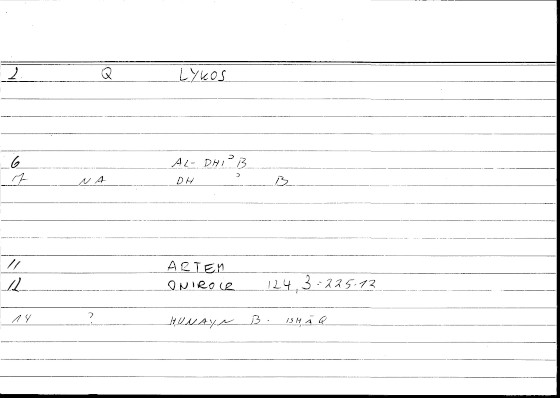 2 Q LYKOS
6 AL-DHIʾB
7 NA DH ʾ B
11 ARTEM
12 ONIROCR 124,3-225.12
14 ? HUNAYN B. ISHĀQ